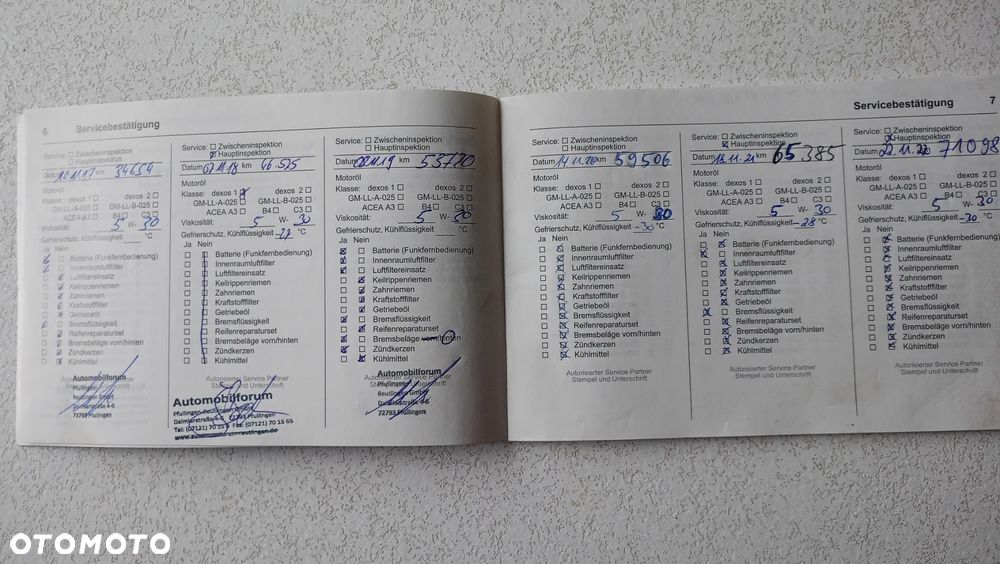 6 Servicebestätigung
Service: Zwischeninspektion
Hauptinspektion
Datum 10.11.17 km 34654
Motoröl
Klasse: dexos 1 dexos 2
GM-LL-A-025 GM-LL-B-025
ACEA A3 B4 C3
Viskosität: 5 W- 30
Gefrierschutz, Kühlflüssigkeit °C
Ja Nein
Batterie (Funkfernbedienung)
Innenraumluftfilter
Luftfiltereinsatz
Keilrippenriemen
Zahnriemen
Kraftstofffilter
Getriebeöl
Bremsflüssigkeit
Reifenreparaturset
Bremsbeläge vorn/hinten
Zündkerzen
Kühlmittel
Automobilforum
Pfullingen
Reutlingen GmbH
Daimlerstraße 4-6
72793 Pfullingen
Service: Zwischeninspektion
Hauptinspektion
Datum 07.11.18 km 46.525
Motoröl
Klasse: dexos 1 dexos 2
GM-LL-A-025 GM-LL-B-025
ACEA A3 B4 C3
Viskosität: 5 W- 30
Gefrierschutz, Kühlflüssigkeit °C
Ja Nein
Batterie (Funkfernbedienung)
Innenraumluftfilter
Luftfiltereinsatz
Keilrippenriemen
Zahnriemen
Kraftstofffilter
Getriebeöl
Bremsflüssigkeit
Reifenreparaturset
Bremsbeläge vorn/hinten
Zündkerzen
Kühlmittel
Autorisierter Service Partner
Stempel und Unterschrift
Automobilforum
Pfullingen-Reutlingen GmbH
Daimlerstraße 4-6 72793 Pfullingen
Tel: (07121) 70 15 Fax (07121) 70 15 65
www.automobilforum-reutlingen.de
Service: Zwischeninspektion
Hauptinspektion
Datum 11.19 km 53770
Motoröl
Klasse: dexos 1 dexos 2
GM-LL-A-025 GM-LL-B-025
ACEA A3 B4 C3
Viskosität: 5 W- 30
Gefrierschutz, Kühlflüssigkeit °C
Ja Nein
Batterie (Funkfernbedienung)
Innenraumluftfilter
Luftfiltereinsatz
Keilrippenriemen
Zahnriemen
Kraftstofffilter
Getriebeöl
Bremsflüssigkeit
Reifenreparaturset
Bremsbeläge vorn/hinten
Zündkerzen
Kühlmittel
Automobilforum
Pfullingen
Reutlingen GmbH
Daimlerstraße 4-6
72793 Pfullingen
Servicebestätigung 7
Service: Zwischeninspektion
Hauptinspektion
Datum 14.11.20 km 59506
Motoröl
Klasse: dexos 1 dexos 2
GM-LL-A-025 GM-LL-B-025
ACEA A3 B4 C3
Viskosität: 5 W- 30
Gefrierschutz, Kühlflüssigkeit -30 °C
Ja Nein
Batterie (Funkfernbedienung)
Innenraumluftfilter
Luftfiltereinsatz
Keilrippenriemen
Zahnriemen
Kraftstofffilter
Getriebeöl
Bremsflüssigkeit
Reifenreparaturset
Bremsbeläge vorn/hinten
Zündkerzen
Kühlmittel
Autorisierter Service Partner
Stempel und Unterschrift
Service: Zwischeninspektion
Hauptinspektion
Datum 18.11.21 km 65.385
Motoröl
Klasse: dexos 1 dexos 2
GM-LL-A-025 GM-LL-B-025
ACEA A3 B4 C3
Viskosität: 5 W- 30
Gefrierschutz, Kühlflüssigkeit -28 °C
Ja Nein
Batterie (Funkfernbedienung)
Innenraumluftfilter
Luftfiltereinsatz
Keilrippenriemen
Zahnriemen
Kraftstofffilter
Getriebeöl
Bremsflüssigkeit
Reifenreparaturset
Bremsbeläge vorn/hinten
Zündkerzen
Kühlmittel
Autorisierter Service Partner
Stempel und Unterschrift
Service: Zwischeninspektion
Hauptinspektion
Datum 22.11. km 71098
Motoröl
Klasse: dexos 1 dexos 2
GM-LL-A-025 GM-LL-B-025
ACEA A3 B4 C3
Viskosität: 5 W- 30
Gefrierschutz, Kühlflüssigkeit -30 °C
Ja Nein
Batterie (Funkfernbedienung)
Innenraumluftfilter
Luftfiltereinsatz
Keilrippenriemen
Zahnriemen
Kraftstofffilter
Getriebeöl
Bremsflüssigkeit
Reifenreparaturset
Bremsbeläge vorn/hinten
Zündkerzen
Kühlmittel
Autorisierter Service Partner
Stempel und Unterschrift
OTOMOTO